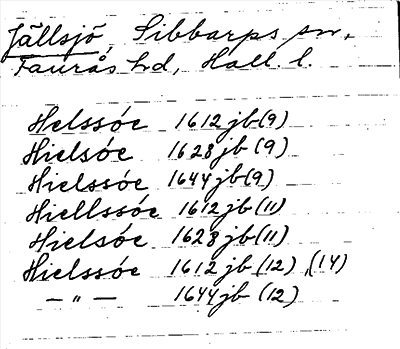 Jällsjö, Sibbarps sn,
Faurås hd, Hall. l.
Helssöe 1612 jb (9)
Hielsöe 1628 jb (9)
Hielssöe 1644 jb (9)
Hiellssöe 1612 jb (11)
Hielsöe 1628 jb (11)
Hielssöe 1612 jb (12), (14)
— " — 1644 jb (12)